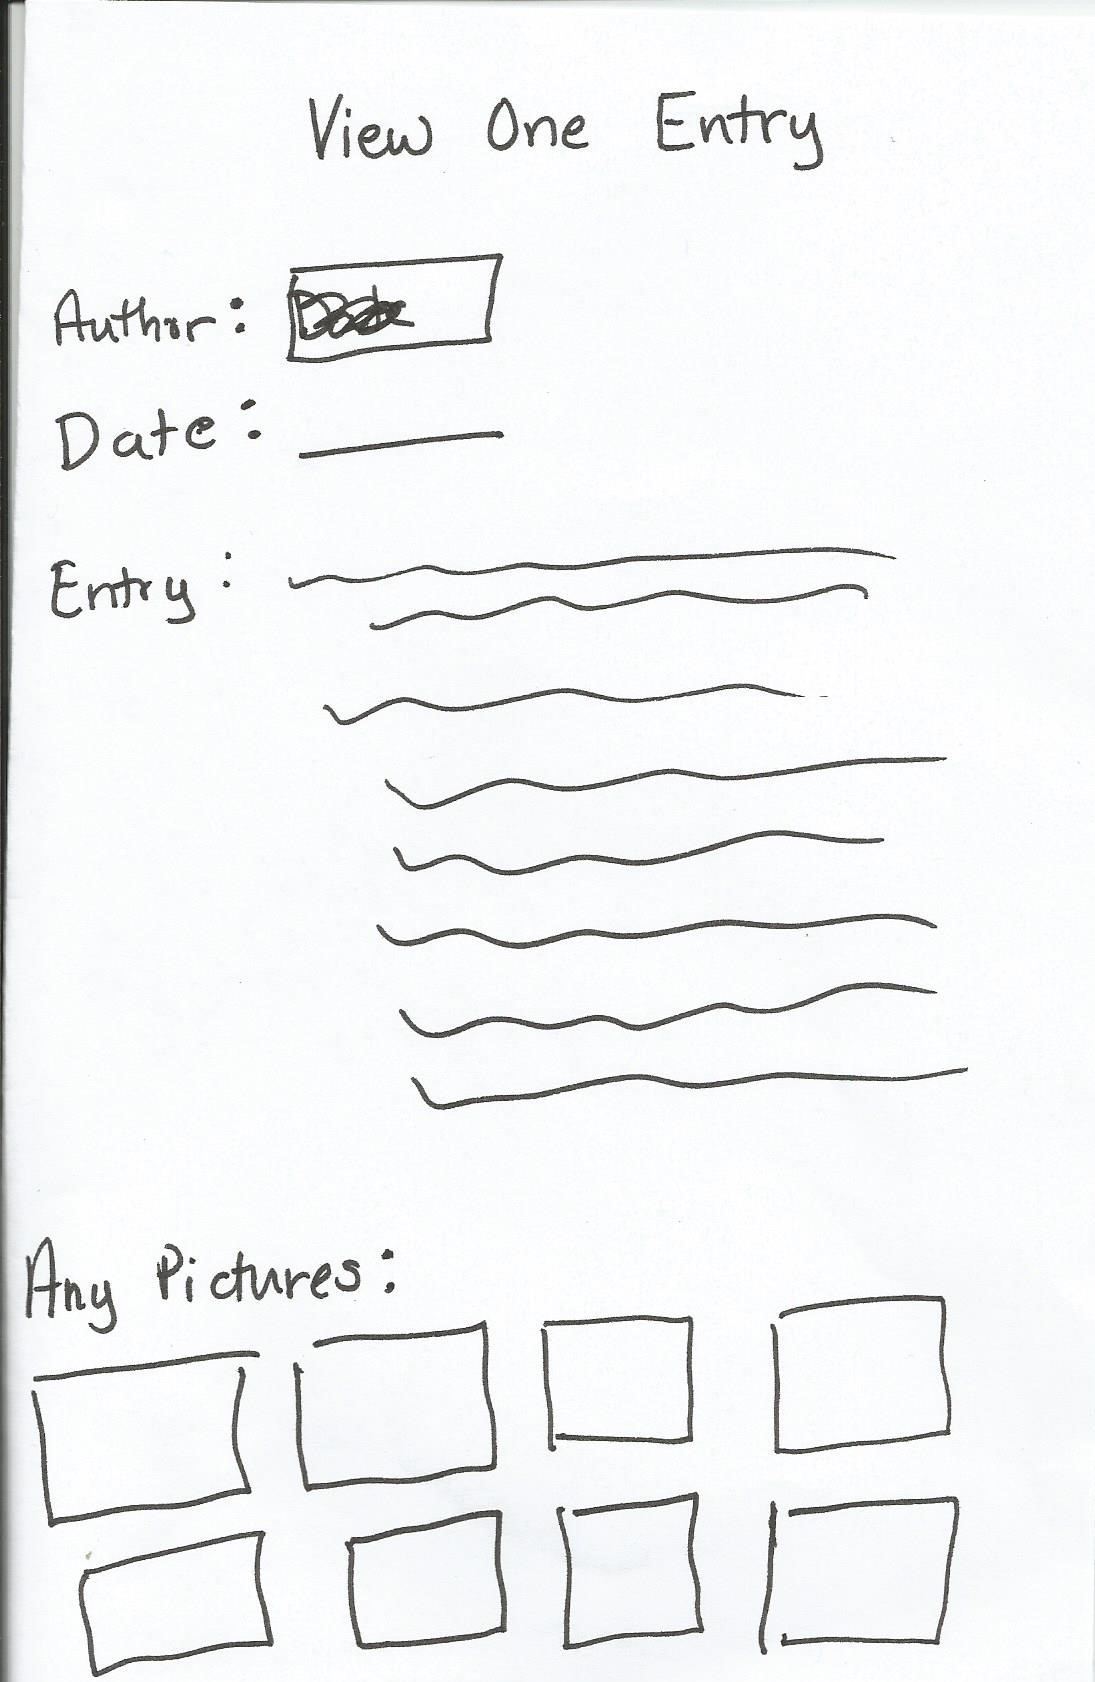 View One Entry
Author:
Date:
Entry:
Any Pictures: